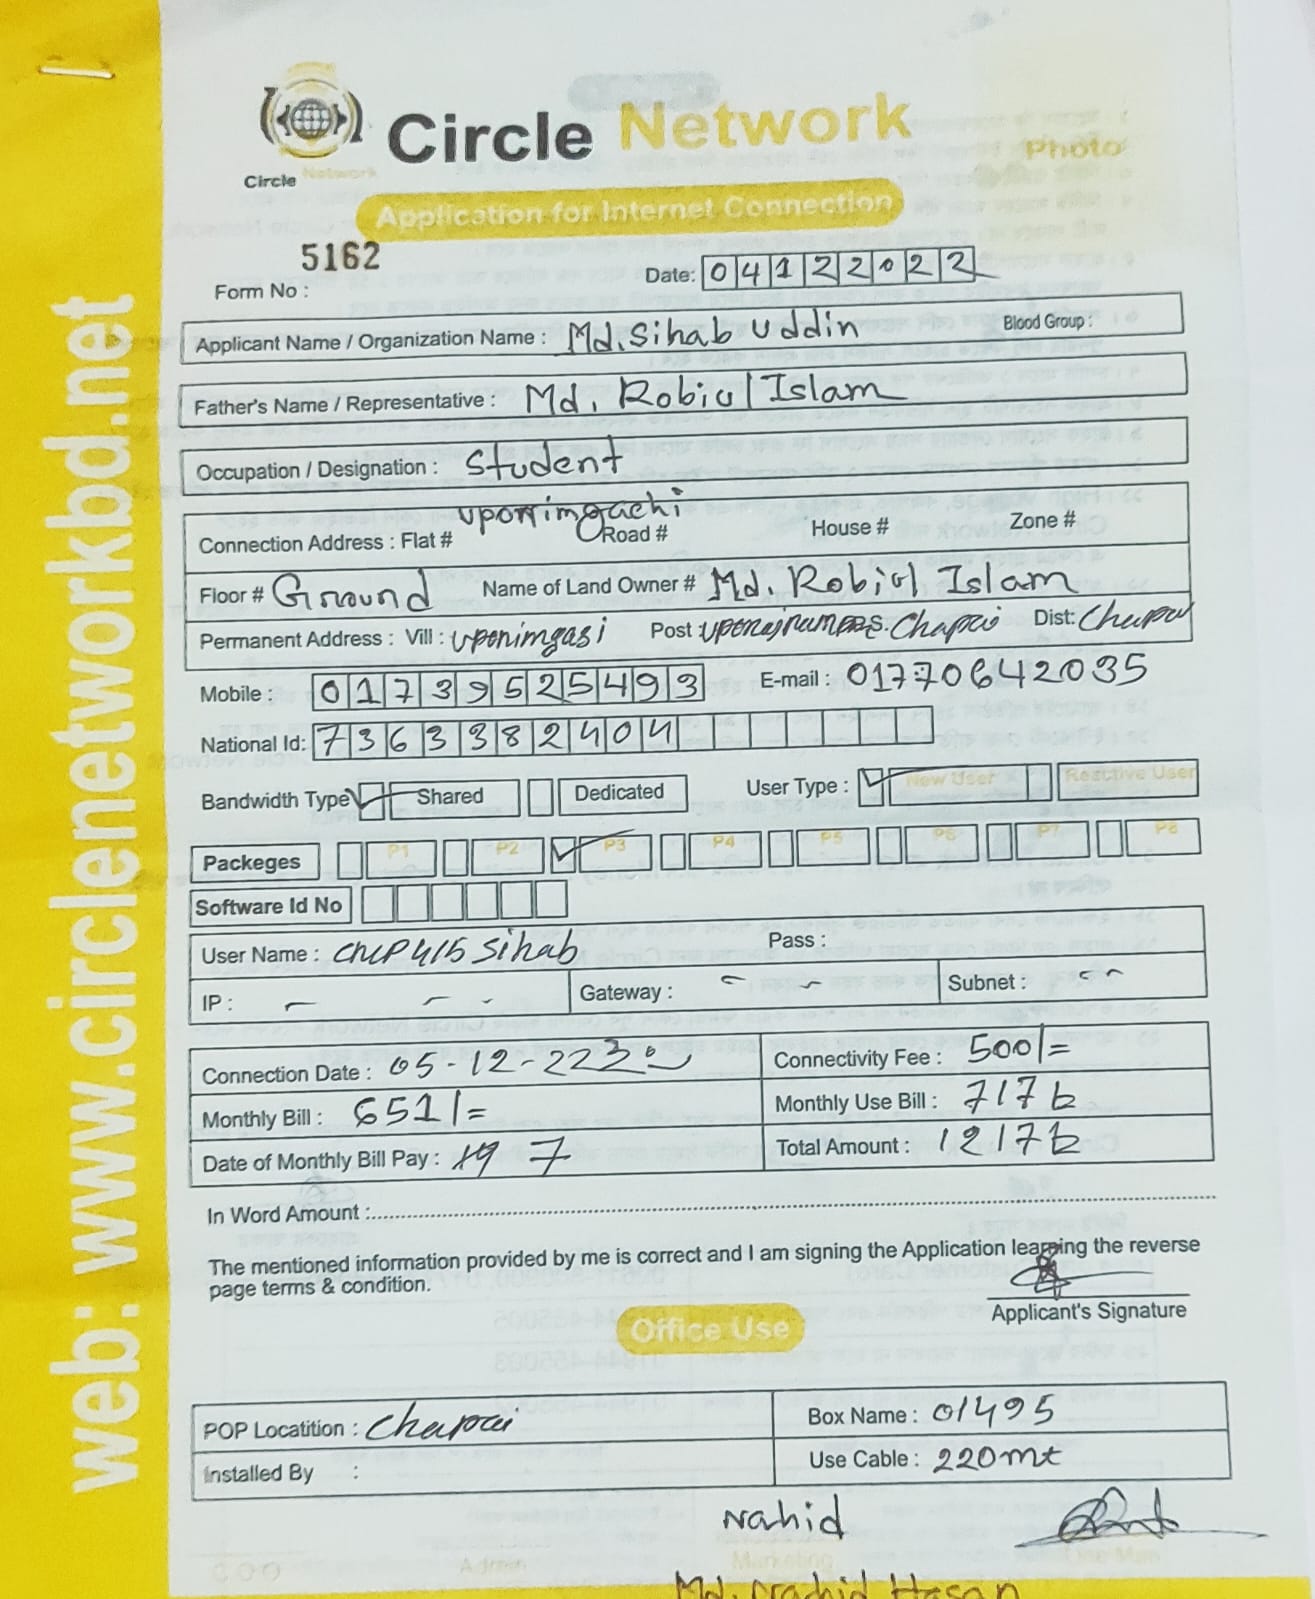 Circle Network
Circle Network
Photo
Application for Internet Connection
5162
Form No :
Date: 04122022
Applicant Name / Organization Name : Md. Sihab Uddin Blood Group :
Father's Name / Representative : Md. Robiul Islam
Occupation / Designation : Student
uporrimgachi
Connection Address : Flat # Road # House # Zone #
Floor # Ground Name of Land Owner # Md. Robiul Islam
Permanent Address : Vill : uponimgasi Post : PS: Chapai Dist: Chapai
Mobile : 01739525493 E-mail : 01770642035
National Id: 7363382404
Bandwidth Type Shared Dedicated User Type : New User Reactive User
Packeges P1 P2 P3 P4 P5 P6 P7 P8
Software Id No
User Name : CNCP415Sihab Pass :
IP : - - - Gateway : - - Subnet : - -
Connection Date : 05-12-22 Connectivity Fee : 500/=
Monthly Bill : 651/= Monthly Use Bill : 717 b
Date of Monthly Bill Pay : 7 Total Amount : 1217 b
In Word Amount :
The mentioned information provided by me is correct and I am signing the Application learning the reverse
page terms & condition.
Applicant's Signature
Office Use
POP Locatition : Chapai Box Name : 01495
Installed By : Use Cable : 220mt
Nahid
Admin Marketing Line Man
Md. Nahid Hasan
web: www.circlenetworkbd.net